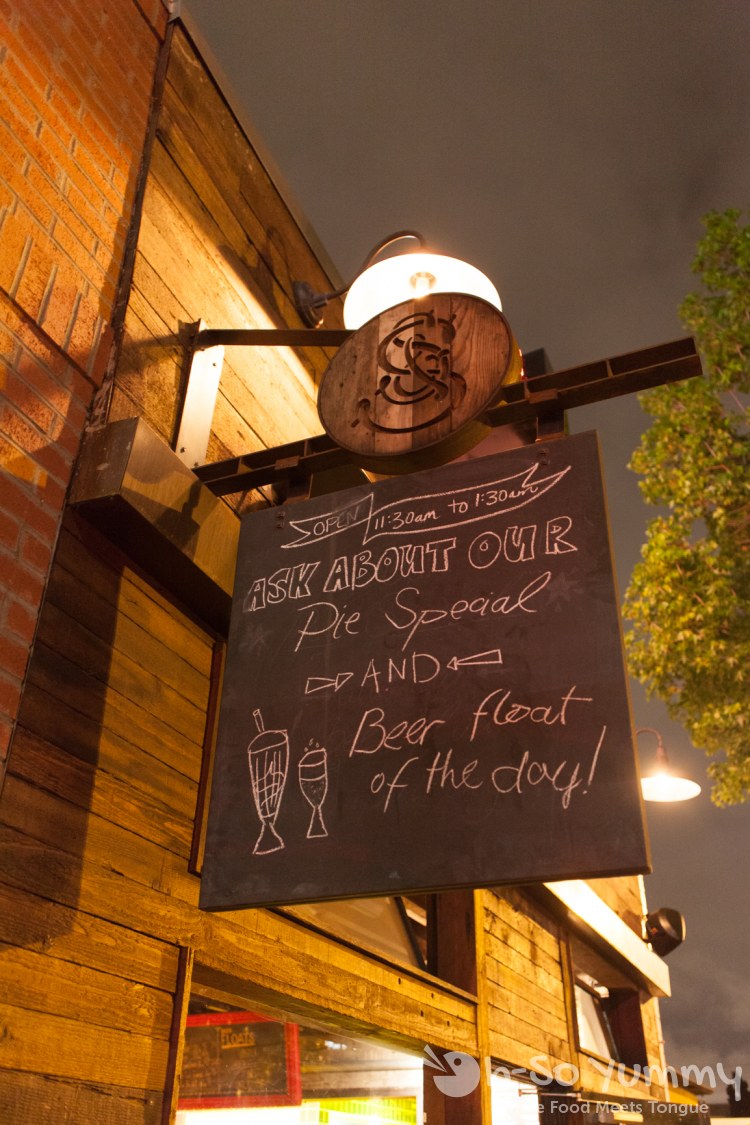 OPEN 11:30am to 1:30am
ASK ABOUT OUR
Pie Special
AND
Beer float
of the day!
FLOATS
Oh-So Yummy
Food Meets Tongue